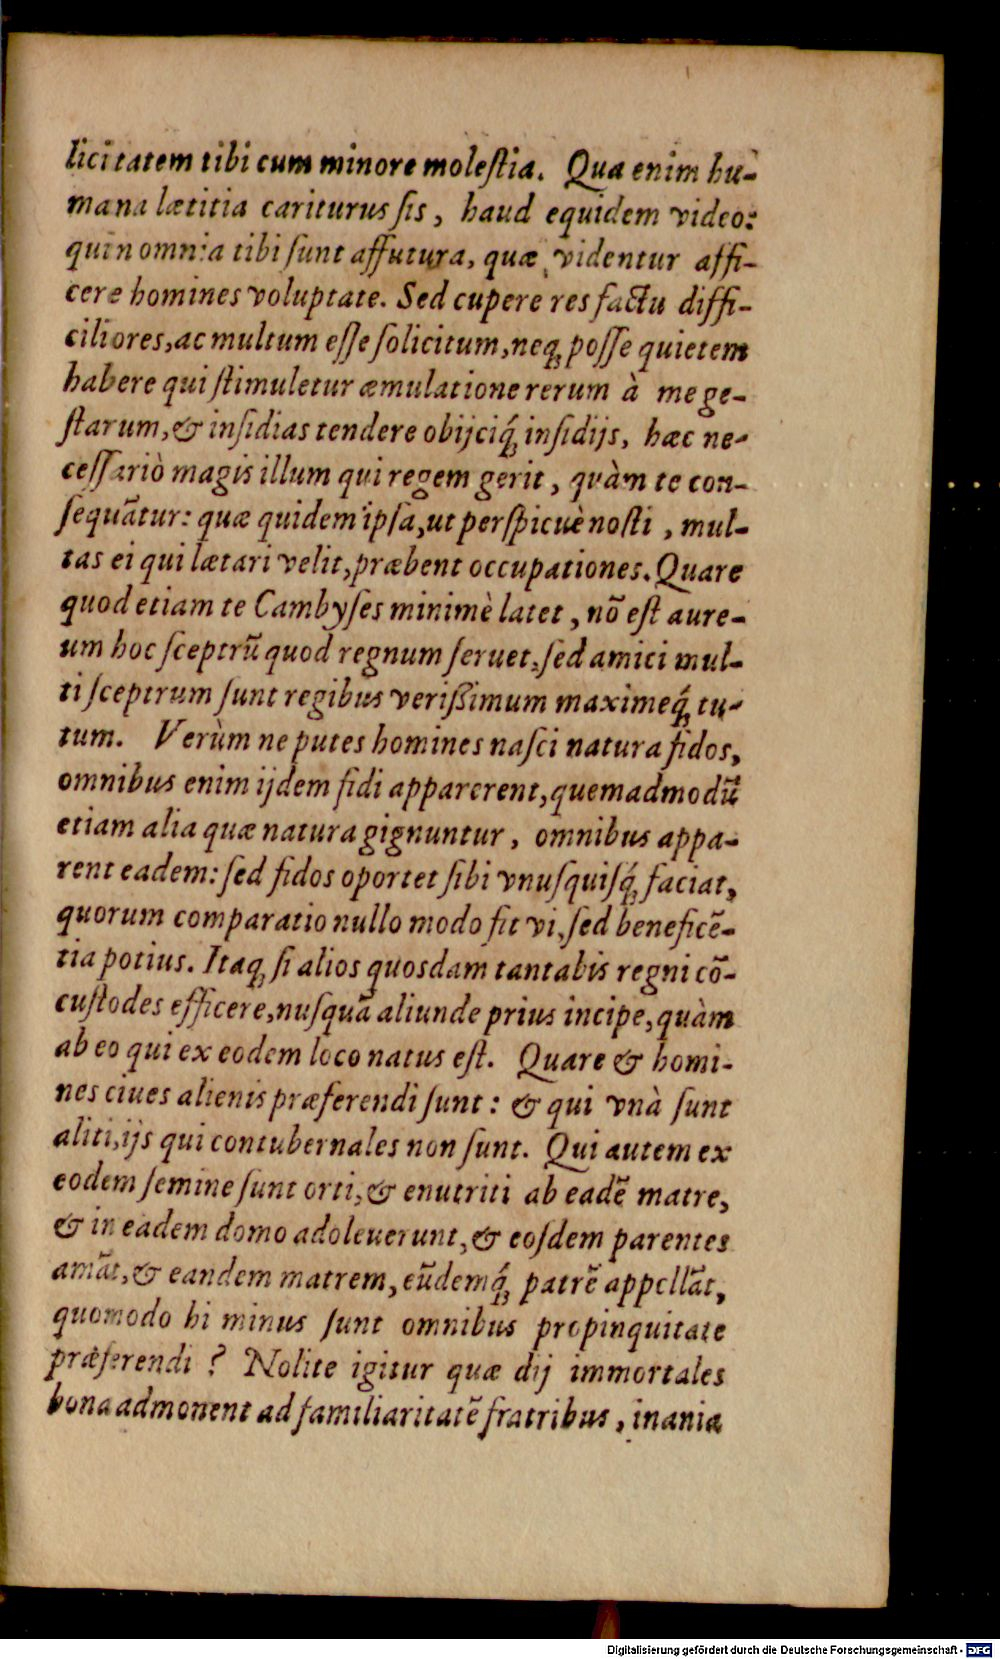 licitatem tibi cum minore moleſtia. Qua enim hu-
mana lætitia cariturus ſis, haud equidem video:
quin omnia tibi ſunt affutura, quæ videntur affi-
cere homines voluptate. Sed cupere res factu diffi-
ciliores, ac multum eſſe ſolicitum, neq; poſſe quietem
habere qui ſtimuletur æmulatione rerum à me ge-
ſtarum, & inſidias tendere obijciq́; inſidijs, hæc ne-
ceſſariò magis illum qui regem gerit, quàm te con-
ſequãtur: quæ quidem ipſa, ut perſpicuè noſti, mul-
tas ei qui lætari velit, præbent occupationes. Quare
quod etiam te Cambyſes minimè latet, nõ eſt aure-
um hoc ſceptrũ quod regnum ſeruet, ſed amici mul-
ti ſceptrum ſunt regibus verißimum maximeq́; tu-
tum. Verùm ne putes homines naſci natura fidos,
omnibus enim ijdem fidi apparerent, quemadmodũ
etiam alia quæ natura gignuntur, omnibus appa-
rent eadem: ſed fidos oportet ſibi vnuſquiſq́; faciat,
quorum comparatio nullo modo fit vi, ſed beneficẽ-
tia potius. Itaq; ſi alios quoſdam tantabis regni cõ-
cuſtodes efficere, nuſquã aliunde prius incipe, quàm
ab eo qui ex eodem loco natus eſt. Quare & homi-
nes ciues alienis præferendi ſunt: & qui vnà ſunt
aliti, ijs qui contubernales non ſunt. Qui autem ex
eodem ſemine ſunt orti, & enutriti ab eadẽ matre,
& in eadem domo adoleuerunt, & eoſdem parentes
amãt, & eandem matrem, eũdemq́; patrẽ appellãt,
quomodo hi minus ſunt omnibus propinquitate
præferendi? Nolite igitur quæ dij immortales
bona admonent ad familiaritatẽ fratribus, inania
Digitalisierung gefördert durch die Deutsche Forschungsgemeinschaft - DFG